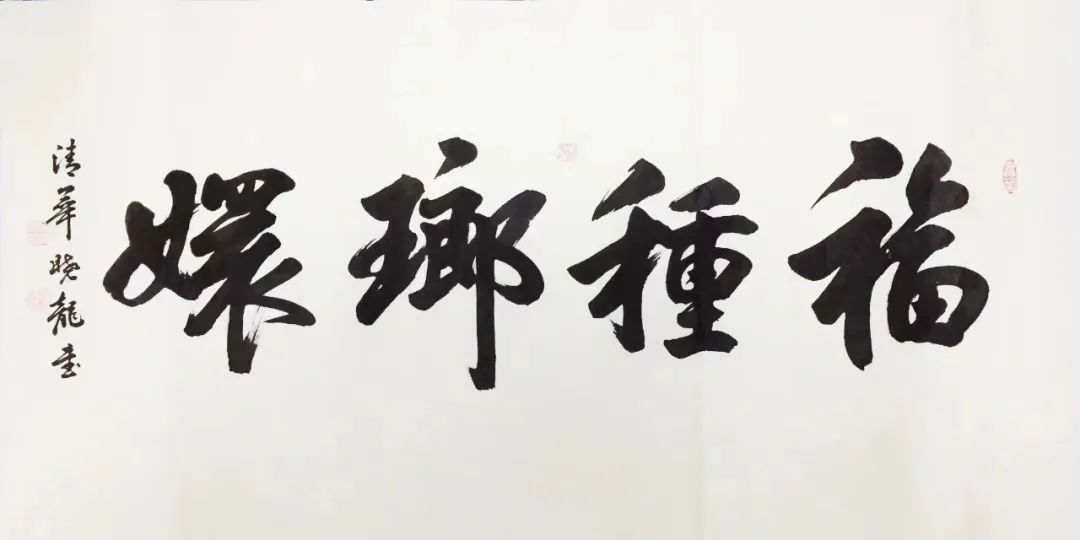 福種瑯嬛
清華曉龍書